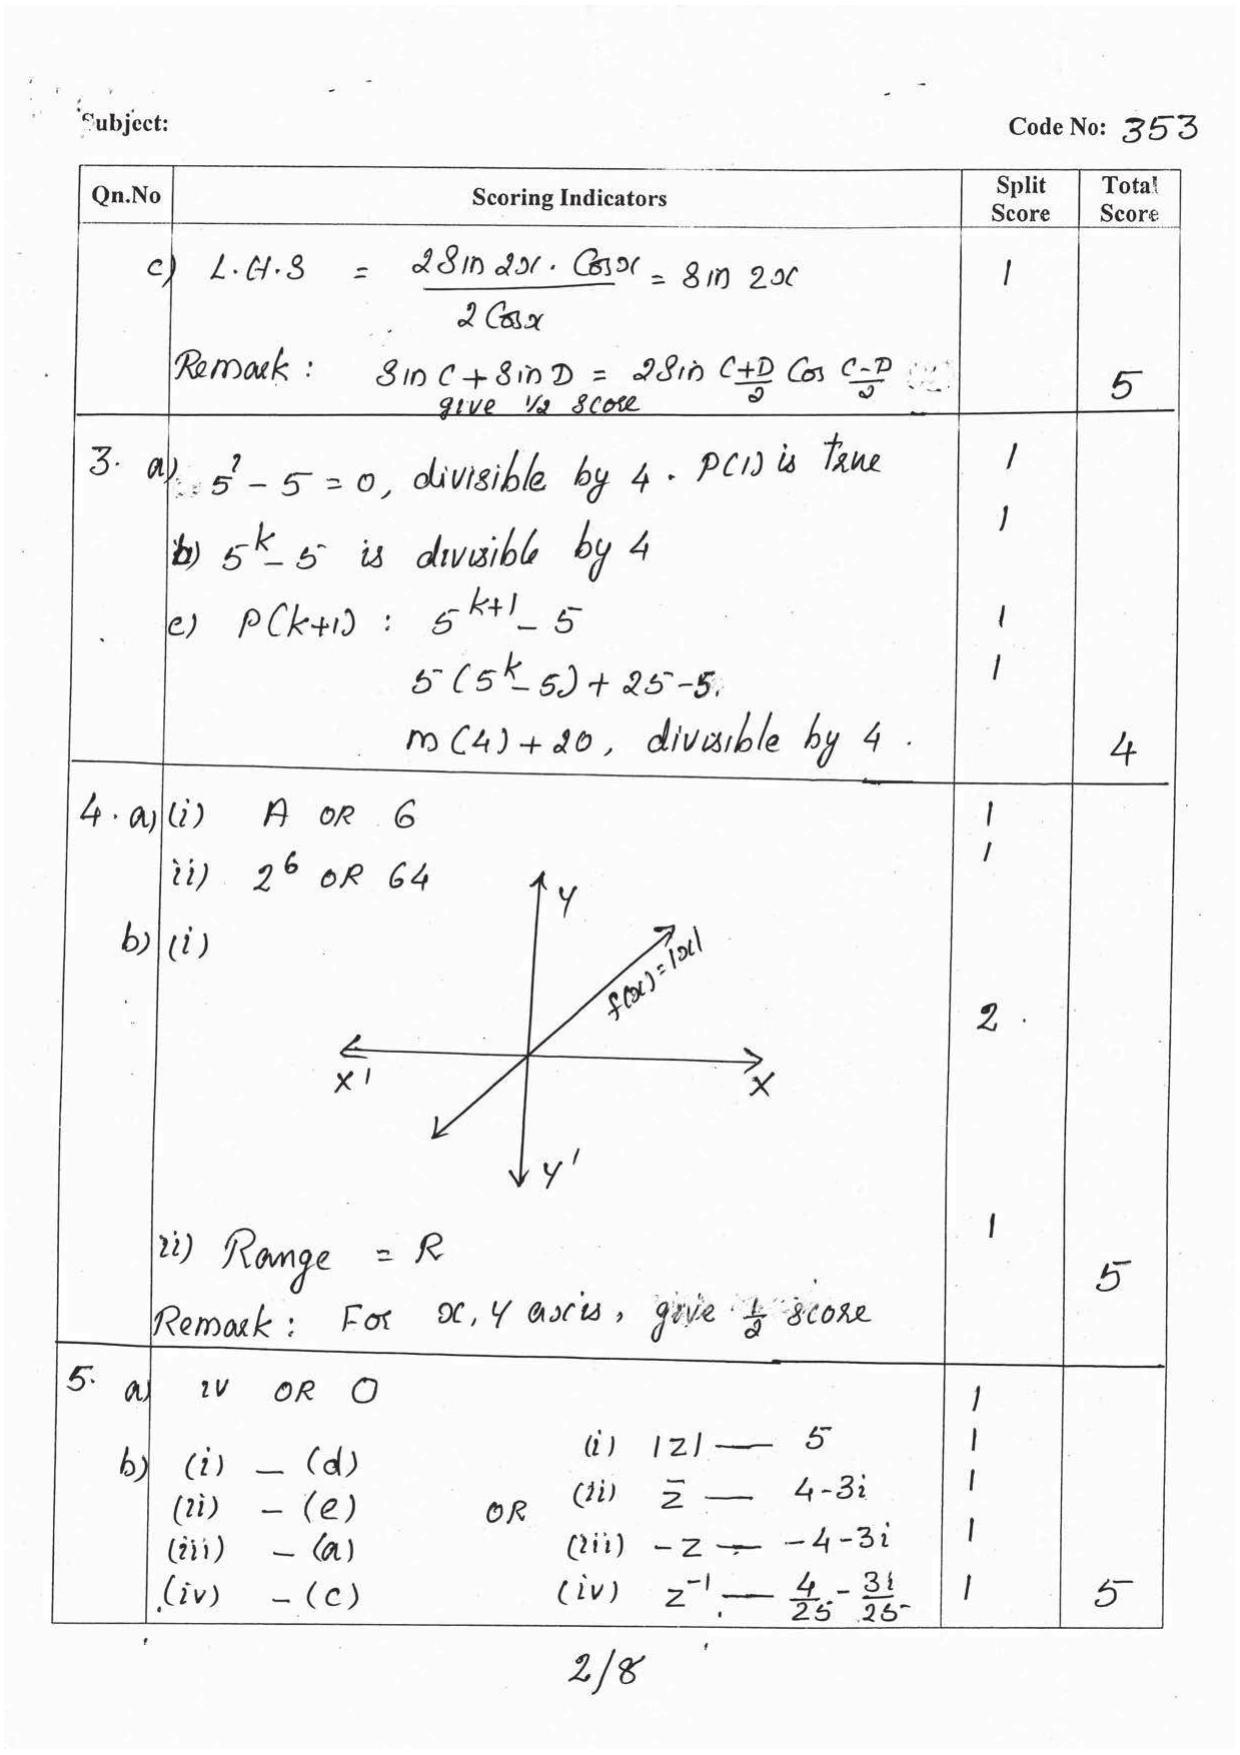 Subject:
Code No: 353
Qn.No Scoring Indicators Split Score Total Score
c) L.H.S = 2Sin 2x . Cosx / 2Cosx = Sin 2x 1
Remark : Sin C + Sin D = 2Sin C+D/2 Cos C-D/2
give 1/2 score 5
3. a) 5¹ - 5 = 0, divisible by 4 . P(1) is true 1
b) 5^k - 5 is divisible by 4 1
c) P(k+1) : 5^k+1 - 5 1
5(5^k - 5) + 25-5. 1
m(4) + 20, divisible by 4 . 4
4. a) (i) A OR 6 1
ii) 2^6 OR 64 1
b) (i)
Y
f(x)=|x|
2
X' X
Y'
ii) Range = R 1
5
Remark : For x, y axis, give 1/2 score
5. a) iv OR 0 1
b) (i) - (d) (i) |z| — 5 1
(ii) - (e) OR (ii) z̄ — 4-3i 1
(iii) - (a) (iii) -z — -4-3i 1
(iv) - (c) (iv) z^-1 — 4/25 - 3i/25 1 5
2/8